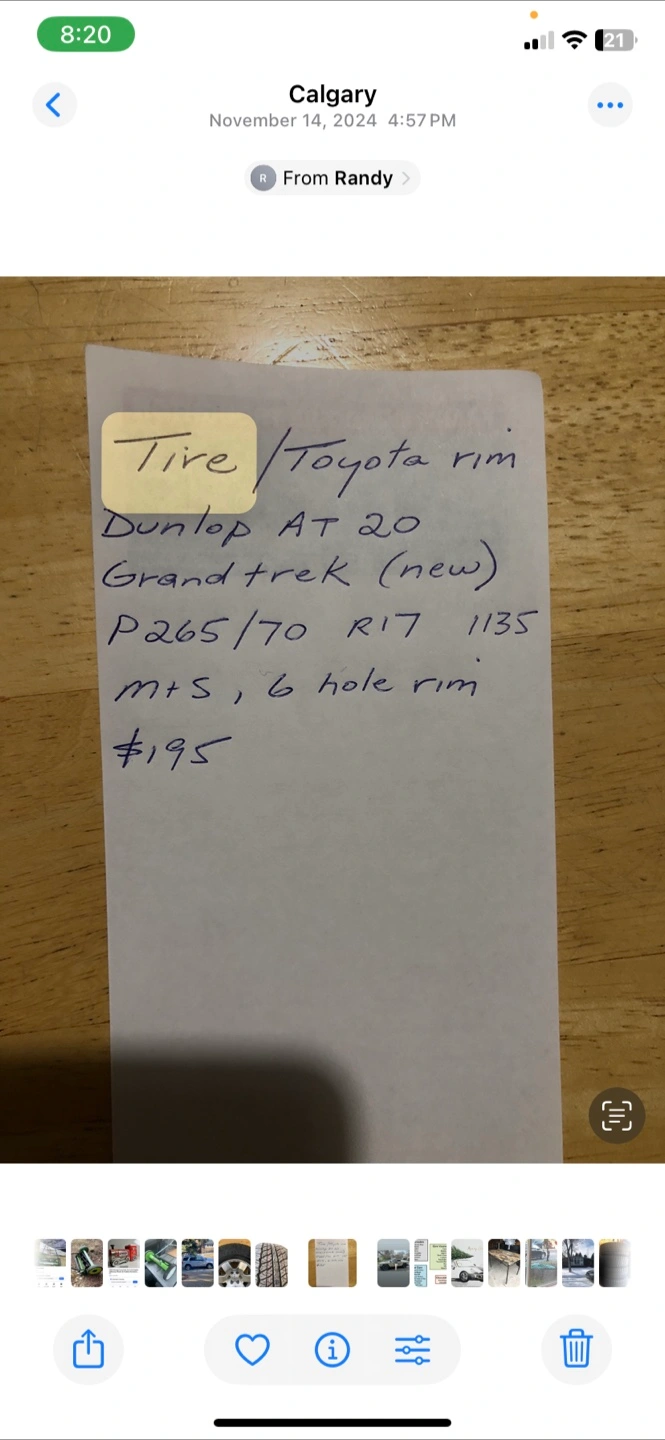 8:20
21
Calgary
November 14, 2024 4:57 PM
R From Randy
Tire/Toyota rim
Dunlop AT 20
Grandtrek (new)
P265/70 R17 113S
M+S, 6 hole rim
$195